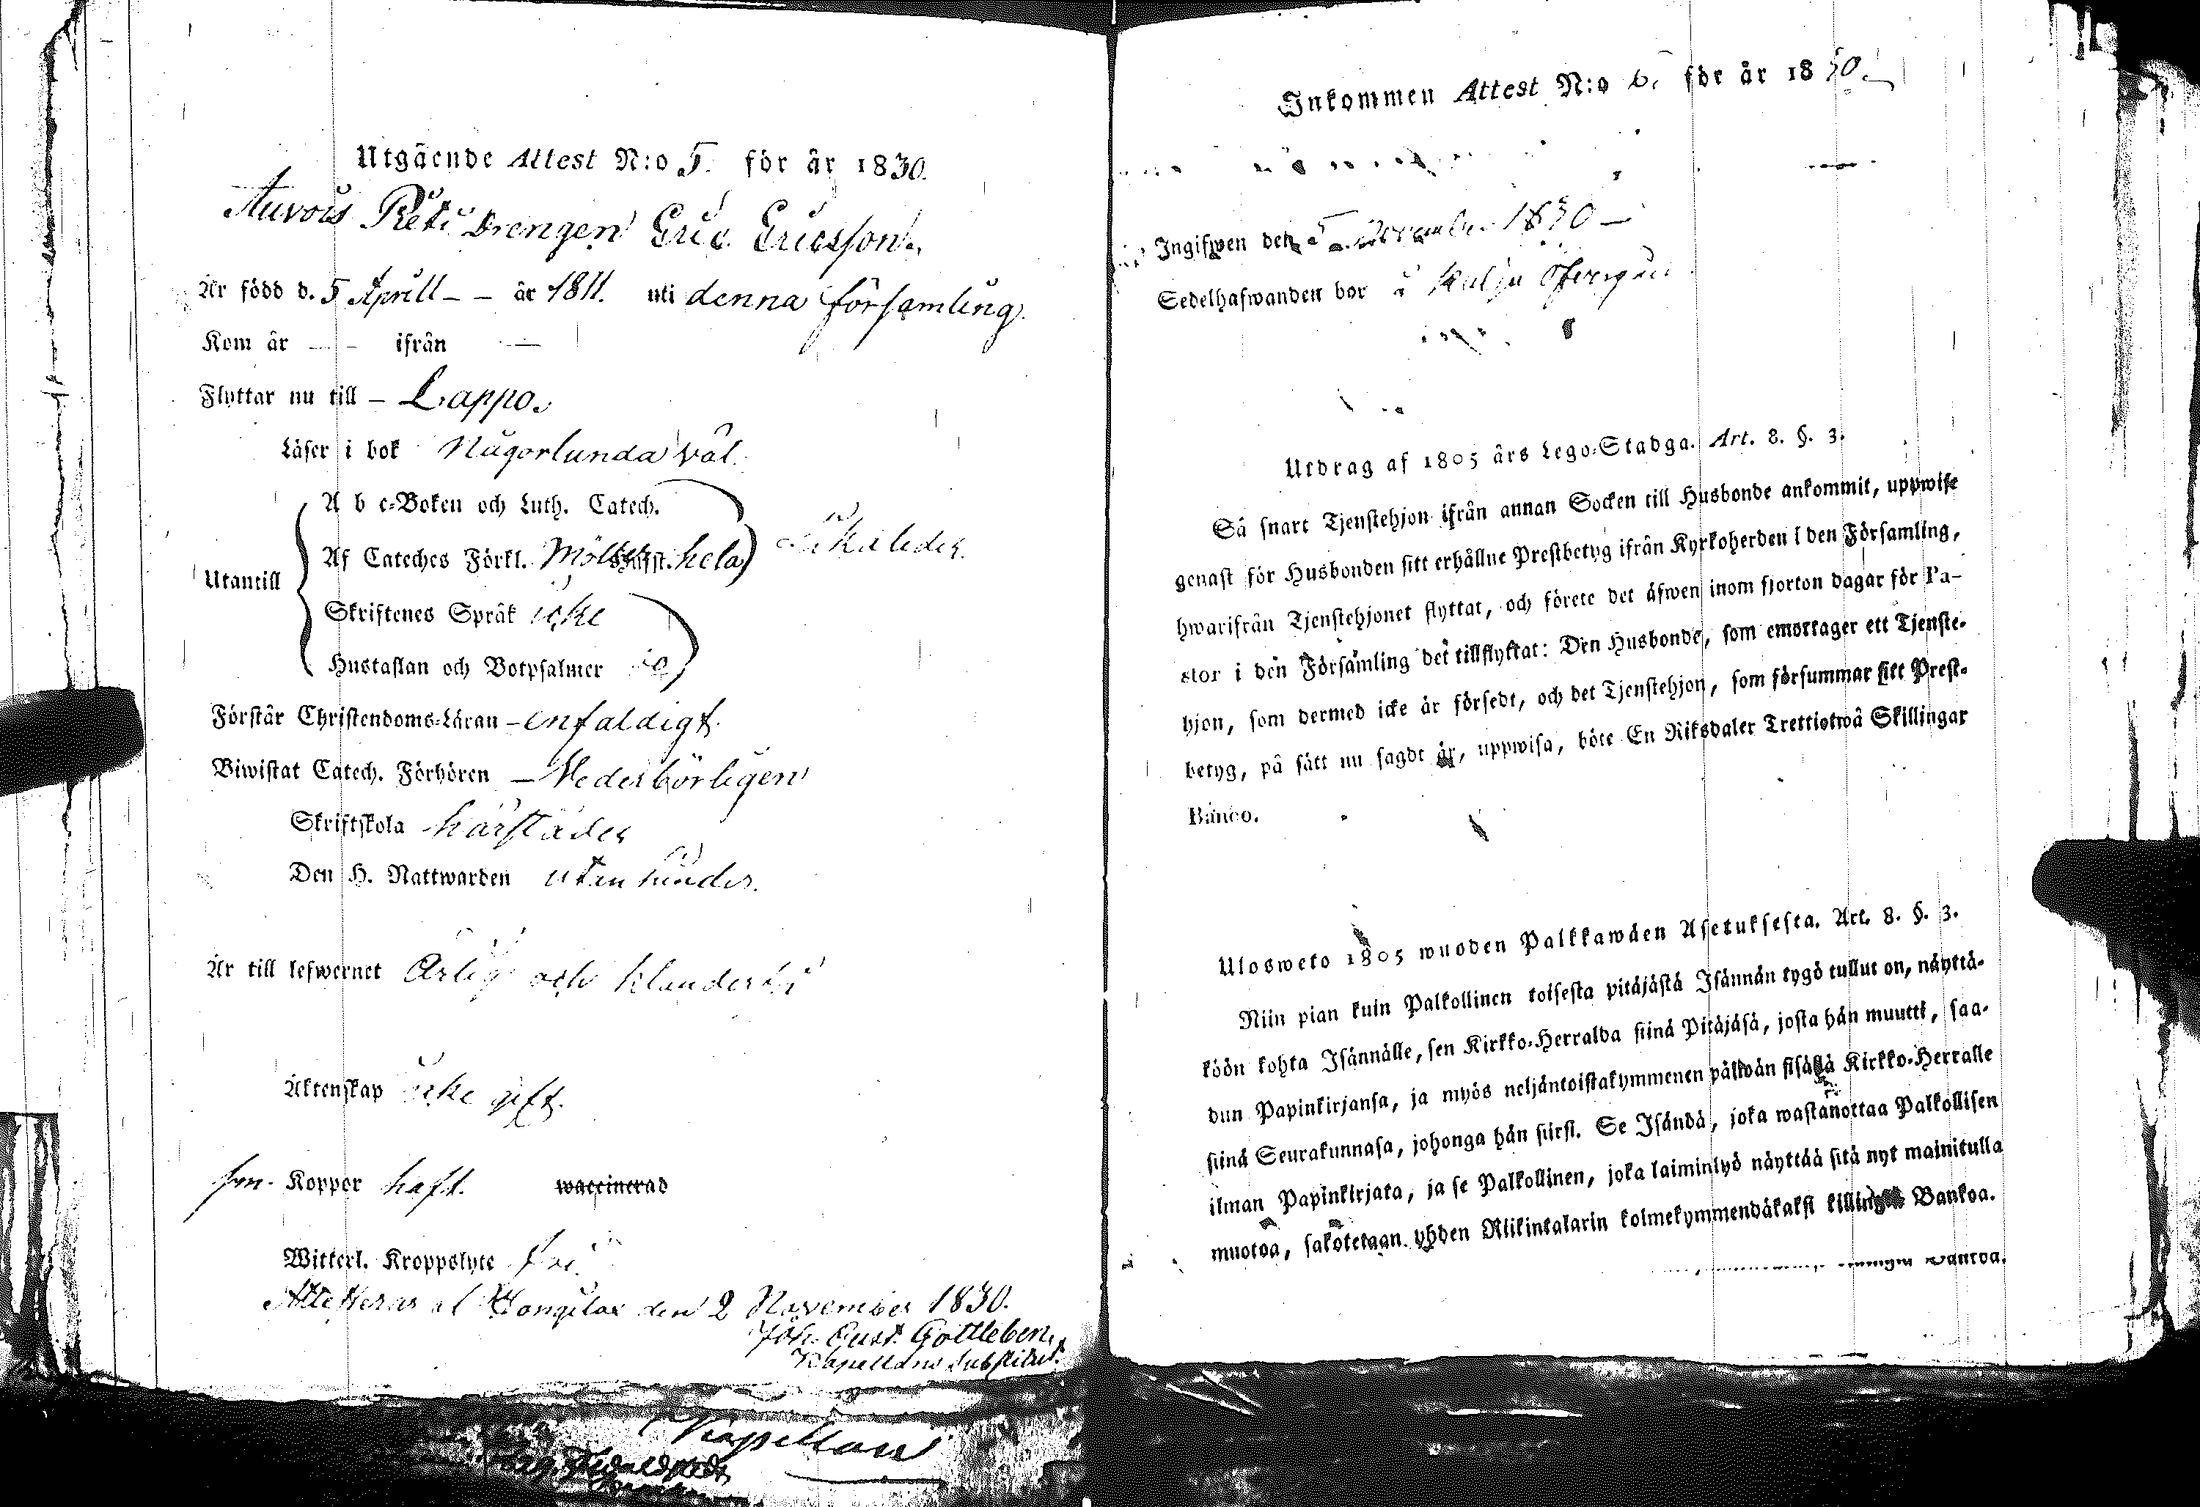 Utgående Attest N:o 5. för år 1830.
Auvois Reti Drengen Eric Ericsson.
Är född d. 5 Aprill – – år 1811. uti denna församling.
Kom år – – ifrån –
Flyttar nu till – Lappo.
Läser i bok Någorlunda väl.
A b c-Boken och Luth. Catech.
Af Cateches Förkl. hela
Utantill
Skriftenes Språk icke
Hustaflan och Botpsalmer
Förstår Christendoms-Läran – enfaldigt.
Biwistat Catech. Förhören – Vederbörligen
Skriftskola härstädes
Den H. Nattwarden utan hinder.
Är till lefwernet Ärlig och
Äktenskap icke gift.
Kopper haft. waccinerad
Witterl. Kroppslyte fri
Attesteras af den 2 November 1830.
Joh. Gust. Gottleben,
Kapellans Substitut.
Kapellan
Inkommen Attest N:o 6. för år 1830.
Ingifwen den 5 November 1830 –
Sedelhafwanden bor å
Utdrag af 1805 års Lego-Stadga. Art. 8. §. 3.
Så snart Tjenstehjon ifrån annan Socken till Husbonde ankommit, uppwise
genast för Husbonden sitt erhållne Prestbetyg ifrån Kyrkoherden i den Församling,
hwarifrån Tjenstehjonet flyttat, och förete det äfwen inom fjorton dagar för Pa-
stor i den Församling det tillflyttat: Den Husbonde, som emottager ett Tjenste-
hjon, som dermed icke är försedt, och det Tjenstehjon, som försummar sitt Prest-
betyg, på sätt nu sagdt är, uppwisa, böte En Riksdaler Trettiotwå Skillingar
Banco.
Ulosweto 1805 wuoden Palkkawäen Asetuksesta. Art. 8. §. 3.
Niin pian kuin Palkollinen toisesta pitäjästä Isännän tygö tullut on, näyttä-
köön kohta Isännälle, sen Kirkko-Herralda siinä Pitäjäsä, josta hän muutti, saa-
dun Papinkirjansa, ja myös neljäntoistakymmenen päiwän sisällä Kirkko-Herralle
siinä Seurakunnasa, johonga hän siirsi. Se Isändä, joka wastanottaa Palkollisen
ilman Papinkirjata, ja se Palkollinen, joka laiminlyö näyttää sitä nyt mainitulla
muotoa, sakotetaan yhden Riikintalarin kolmekymmendäkaksi killingiä Bankoa.